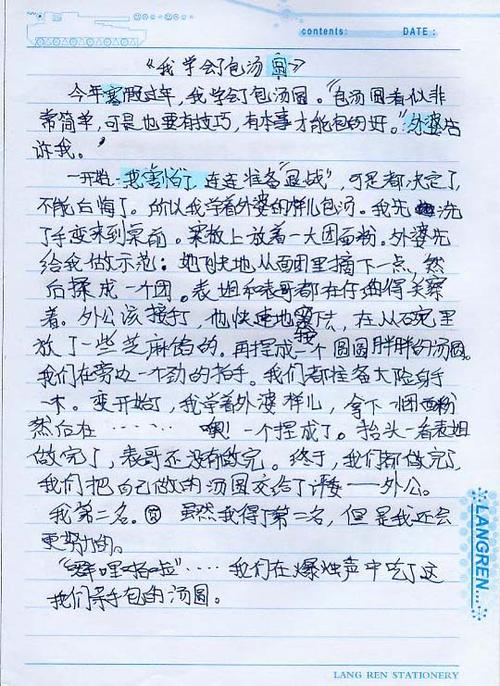 contents:
DATE:
《我学会了包汤圆》
今年寒假过年，我学会了包汤圆。"包汤圆看似非
常简单，可是也要有技巧，有本事才能包的好。"外婆告
诉我。
一开始，我害怕了，连连准备"退战"，可是都决定了，
不能后悔了。所以我学着外婆的样儿包汤。我先洗
了手变来到桌前。桌板上放着一大团面粉。外婆先
给我做示范：她飞快地从面团里摘下一点，然
后揉成一个团。表姐和表哥都在仔细得关察
着。外公该接手了，他快速地，在从碗里
放了一些芝麻馅的。再捏成一个圆圆胖胖的汤圆。
我们在旁边一个劲的拍手。我们都准备大险身手
一术。变开始了，我学着外婆样儿，拿下一团面粉
然后在……噢！一个捏成了。抬头一看表姐
做完了，表哥还没有做完。终于，我们都做完了，
我们把自己做的汤圆交给了评委——外公。
我第二名。虽然我得了第二名，但是我还会
更努力的。
"噼里啪啦"……我们在爆烛声中吃了这
我们亲手包的汤圆。
LANGREN...
LANG REN STATIONERY